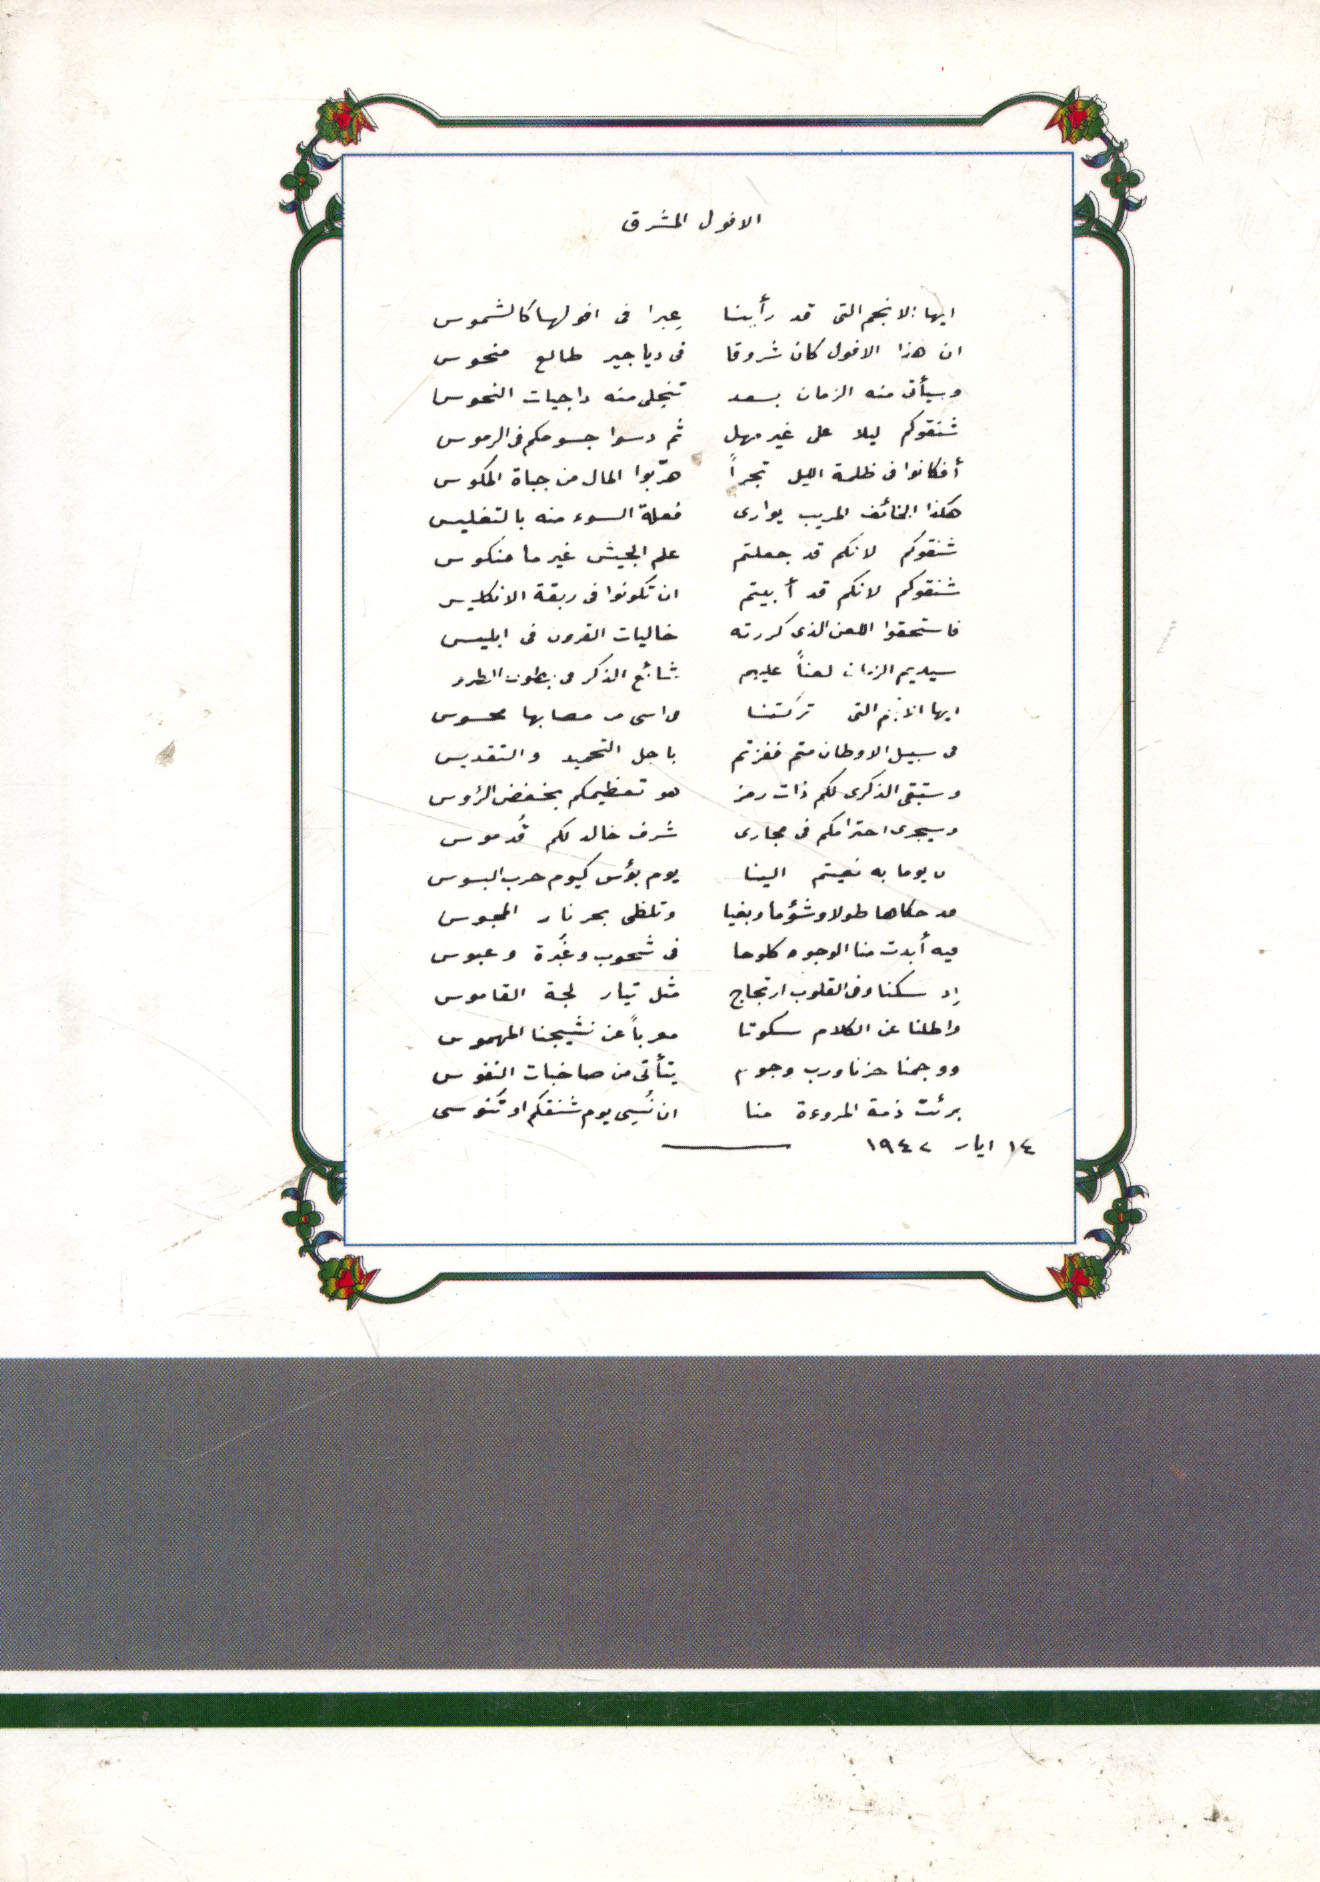 الافول المشرق
ايها الانجم التى قد رأينا عِبرا فى افولها كالشموس
ان هذا الافول كان شروقا فى دياجير طالع منحوس
وسيأتى منه الزمان بسعد تنجلى منه داجيات النحوس
شنقوكم ليلا على غير مهل ثم دسوا جسومكم فى الرموس
أفكانوا فى ظلمة الليل تجراً هرّبوا المال من جباة المكوس
هكذا الخائف المريب يوارى فعلة السوء منه بالتغليس
شنقوكم لانكم قد جعلتم علم الجيش غير ما منكوس
شنقوكم لانكم قد أبيتم ان تكونوا فى ربقة الانكليس
فاستحقوا اللعن الذى كررته خاليات القرون فى ابليس
سيديم الزمان لعناً عليهم شائع الذكر فى بطون
ايها الانجم التى تركتنا فى اسى من مصابها محسوس
فى سبيل الاوطان متم ففزتم باجل التحميد والتقديس
وستبقى الذكرى لكم ذات رمز هو تعظيمكم بخفض الرؤوس
وسيجرى احترامكم فى مجارى شرف خالد لكم قُدموس
يوما به نعيتم الينا يوم بؤس كيوم حرب البسوس
قد حكاها طولا وشؤما وبغيا وتلظى بحر نار المجوس
فيه أبدت منا الوجوه كلوحا فى شحوب وغُبرة وعبوس
اذ سكنا وفى القلوب ارتجاج مثل تيار لجة القاموس
واطلنا عن الكلام سكوتا معرباً عن نشيجنا المهموس
ووجمنا حزنا ورب وجوم يتأتى من صاخبات النفوس
برئت ذمة المروءة منا ان نُسِى يوم شنقكم او تُنوسى
١٤ ايار ١٩٤٢